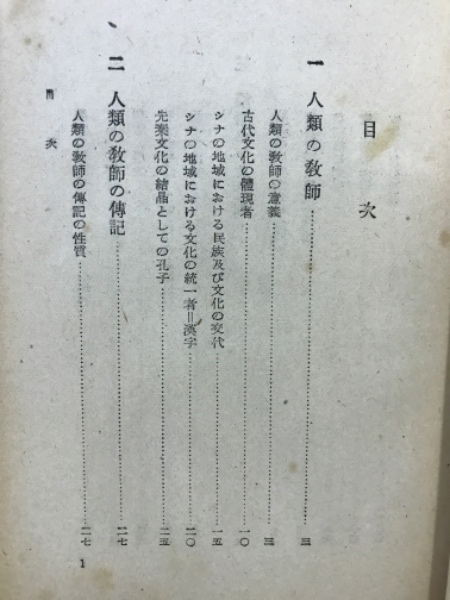 目次
一 人類の教師……三
人類の教師の意義……三
古代文化の體現者……一〇
シナの地域における民族及び文化の交代……一五
シナの地域における文化の統一者=漢字……二〇
先秦文化の結晶としての孔子……二五
二 人類の教師の傳記……二七
人類の教師の傳記の性質……二七
目次
1